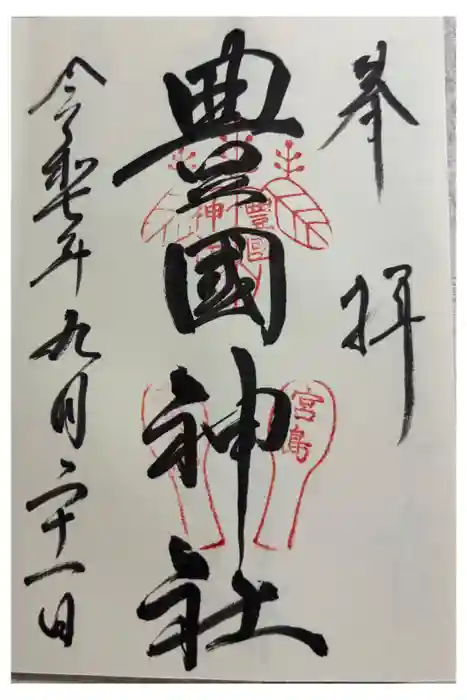 奉拝
豊國神社
令和七年九月二十一日
豊国
神社
宮島